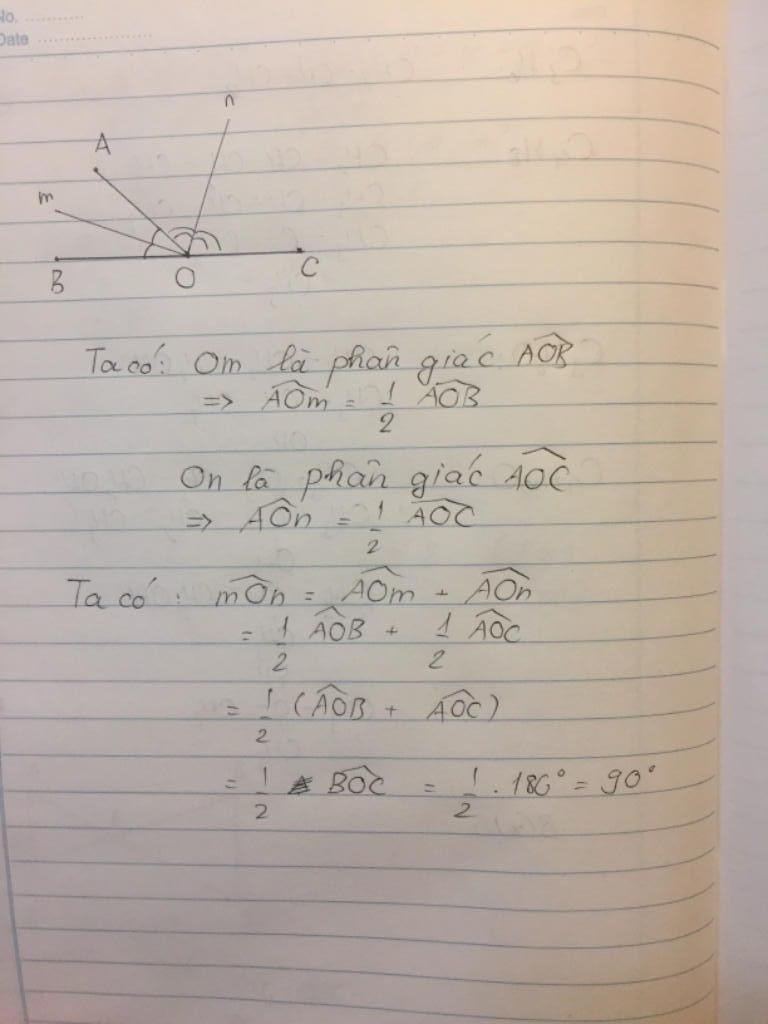 No. ............
Date ........................
n
A
m
B
O
C
Ta có: Om là phân giác $\widehat{AOB}$
=> $\widehat{AOm}$ = $\frac{1}{2}$ $\widehat{AOB}$
On là phân giác $\widehat{AOC}$
=> $\widehat{AOn}$ = $\frac{1}{2}$ $\widehat{AOC}$
Ta có: $\widehat{mOn}$ = $\widehat{AOm}$ + $\widehat{AOn}$
= $\frac{1}{2}$ $\widehat{AOB}$ + $\frac{1}{2}$ $\widehat{AOC}$
= $\frac{1}{2}$ ($\widehat{AOB}$ + $\widehat{AOC}$)
= $\frac{1}{2}$ $\widehat{BOC}$ = $\frac{1}{2}$ . 180° = 90°